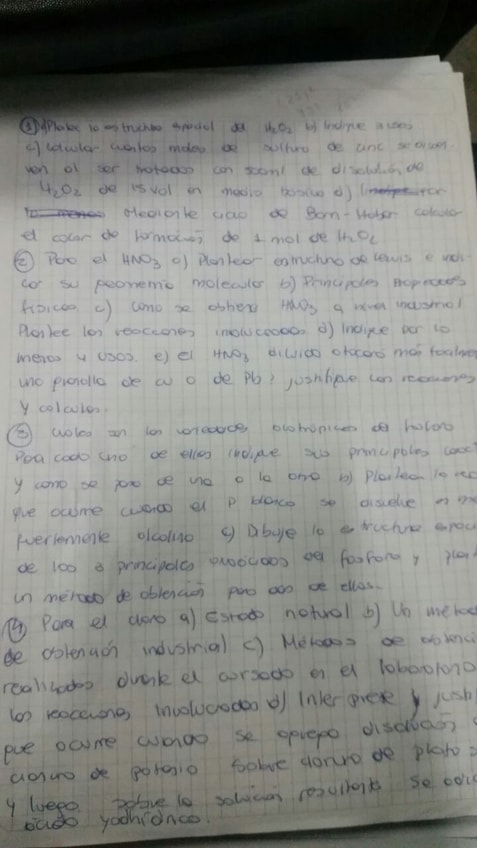 ① a) Plantee la estructura espacial del H2O2 b) Indique 3 usos
c) calcular cuantos moles de sulfuro de zinc se disuel
ven al ser tratados con 500ml de disolución de
H2O2 de 15 vol en medio básico d)
Mediante ciclo de Born-Haber calcular
el calor de formación de 1 mol de H2O2
② Para el HNO3 a) Plantear estructura de Lewis e indi
car su geometría molecular b) Principales propiedades
físicas c) como se obtiene HNO3 a nivel industrial
Plantee las reacciones involucradas d) Indique por lo
menos 4 usos. e) el HNO3 diluido atacará más fácilmen
una planilla de cu o de Pb? justifique con reacciones
y calculos.
③ cuales son las variedades alotrópicas del fosforo
Para cada una de ellas indique sus principales carac
y como se pasa de una a la otra b) Plantea la reac
que ocurre cuando el P blanco se disuelve en me
fuertemente alcalino c) Dibuje la estructura espac
de los 3 principales oxoácidos del fosforo y plan
un método de obtención para dos de ellos.
④ Para el cloro a) Estado natural b) Un métod
de obtención industrial c) Métodos de obtenci
realizados durante el cursado en el laboratorio
las reacciones involucradas d) Interprete y justi
que ocurre cuando se agrega disolución
cianuro de potasio sobre cloruro de plata
y luego sobre la solución resultante se adic
ácido yodhídrico.